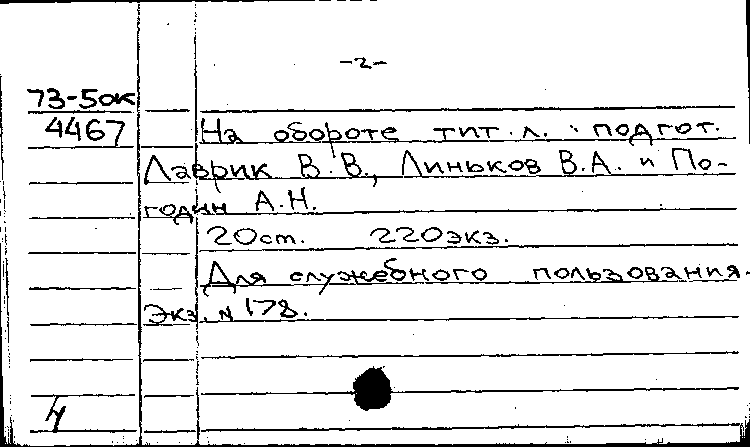 -2-
73-5ок
4467 На обороте тит.л.: подгот.
Лаврик В.В., Линьков В.А. и По-
годин А.Н.
20ст. 220экз.
Для служебного пользования.
Экз. N 178.